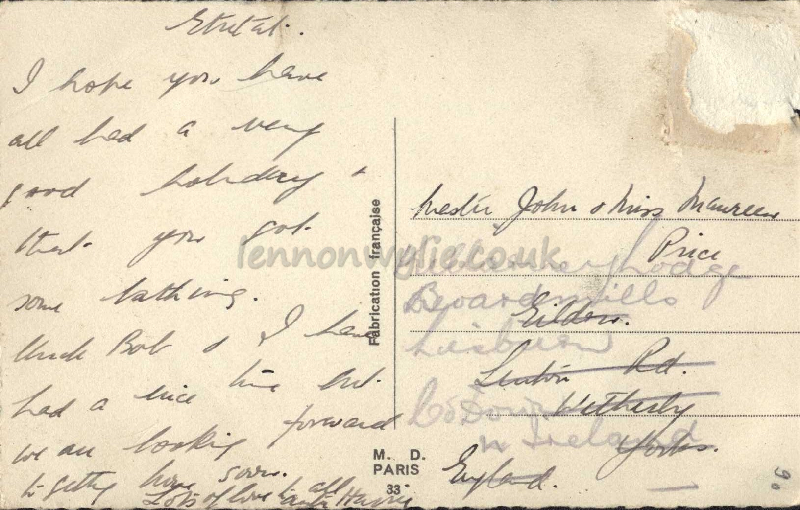 Etretat.
I hope you have
all had a very
good holiday &
that you got
some bathing.
Uncle Bob & I have
had a nice time but
we are looking forward
to getting home soon.
Lots of love to all
Auntie
lennonwylie.co.uk
Fabrication française
M. D.
PARIS
33
Master John & Miss Maureen
Price
Lodge
Broardmills
Eildon.
Lisburn
Linton Rd.
Wetherby
Co Down
N Ireland
Yorks.
England.